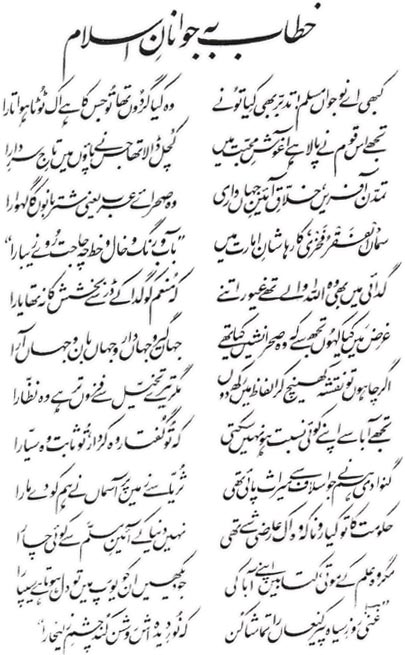 خطاب بہ جوانانِ اسلام
کبھی اے نوجواں مسلم! تدبّر بھی کیا تو نے وہ کیا گردُوں تھا تُو جس کا ہے اک ٹوٹا ہوا تارا
تجھے اس قوم نے پالا ہے آغوشِ محبّت میں کُچل ڈالا تھا جس نے پاؤں میں تاجِ سرِ دارا
تمدّن آفریں، خلّاقِ آئینِ جہاں داری وہ صحرائے عرب یعنی شتربانوں کا گہوارا
سماں ’الفقرُ فخری‘ کا رہا شانِ امارت میں ”بآب و رنگ و خال و خط چہ حاجت روے زیبارا“
گدائی میں بھی وہ اللہ والے تھے غیور اتنے کہ مُنعم کو گدا کے ڈر سے بخشش کا نہ تھا یارا
غرض مَیں کیا کہوں تجھ سے کہ وہ صحرا نشیں کیا تھے جہاں گیر و جہاں دار و جہاں بان و جہاں آرا
اگر چاہوں تو نقشہ کھینچ کر الفاظ میں رکھ دوں مگر تیرے تخیّل سے فزوں تر ہے وہ نظّارا
تجھے آبا سے اپنے کوئی نسبت ہو نہیں سکتی کہ تُو گفتار وہ کردار، تُو ثابت وہ سیّارا
گنوا دی ہم نے جو اسلاف سے میراث پائی تھی ثُریّا سے زمیں پر آسماں نے ہم کو دے مارا
حکومت کا تو کیا رونا کہ وہ اک عارضی شے تھی نہیں دنیا کے آئینِ مسلَّم سے کوئی چارا
مگر وہ عِلم کے موتی، کتابیں اپنے آبا کی جو دیکھیں ان کو یورپ میں تو دل ہوتا ہے سیپارا
”غنیؔ! روزِ سیاہِ پیرِ کنعاں را تماشا کُن کہ نُورِ دیدہ اش روشن کُند چشمِ زلیخا را“